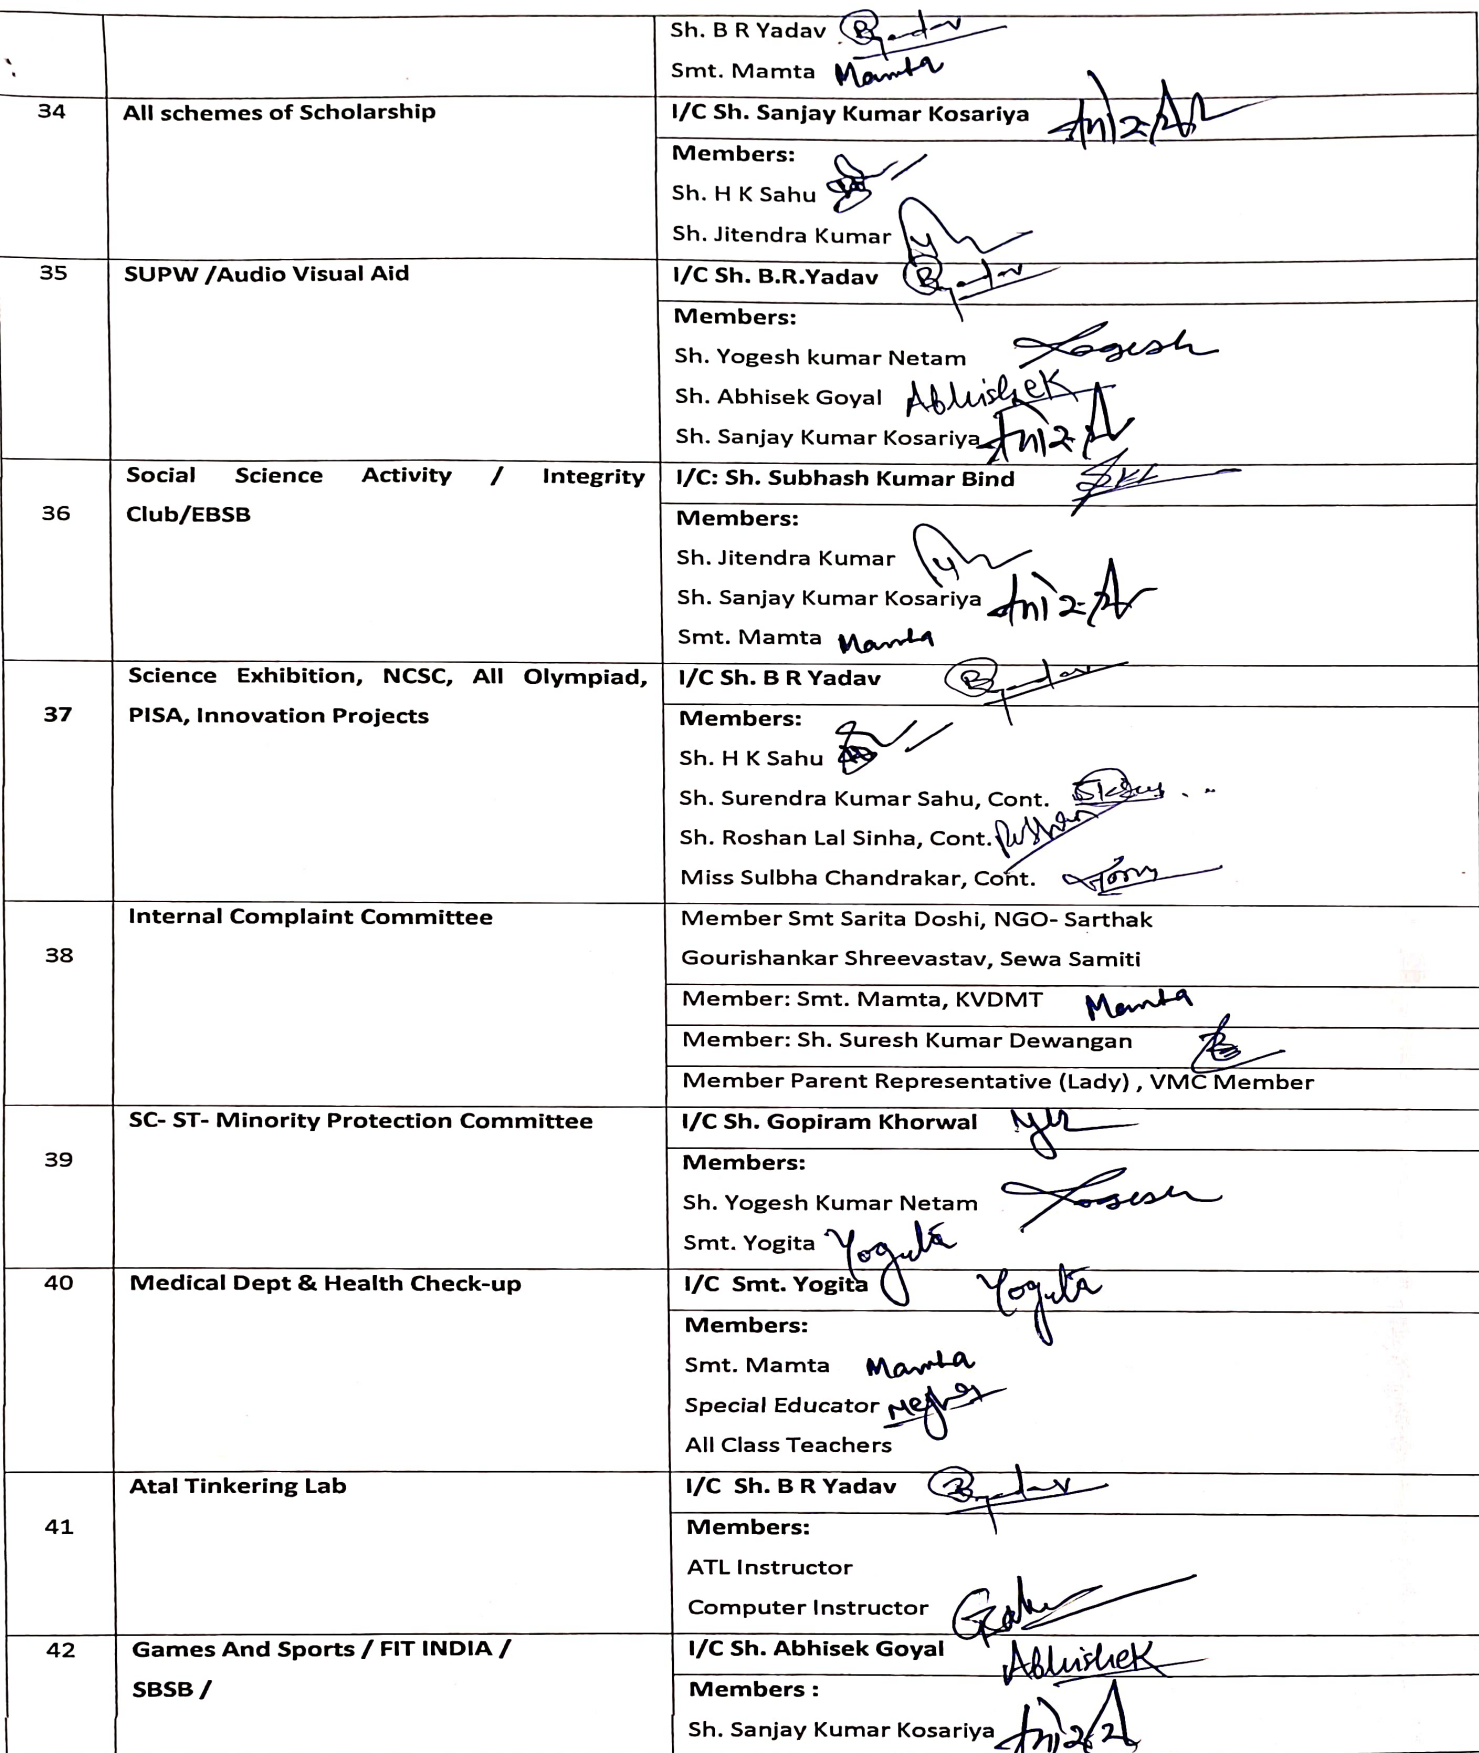 Sh. B R Yadav Byadav
Smt. Mamta Mamta
34 All schemes of Scholarship I/C Sh. Sanjay Kumar Kosariya
Members:
Sh. H K Sahu
Sh. Jitendra Kumar
35 SUPW /Audio Visual Aid I/C Sh. B.R.Yadav Byadav
Members:
Sh. Yogesh kumar Netam Yogesh
Sh. Abhisek Goyal Abhishek
Sh. Sanjay Kumar Kosariya
Social Science Activity / Integrity I/C: Sh. Subhash Kumar Bind
36 Club/EBSB Members:
Sh. Jitendra Kumar
Sh. Sanjay Kumar Kosariya
Smt. Mamta Mamta
Science Exhibition, NCSC, All Olympiad, I/C Sh. B R Yadav Byadav
37 PISA, Innovation Projects Members:
Sh. H K Sahu
Sh. Surendra Kumar Sahu, Cont.
Sh. Roshan Lal Sinha, Cont.
Miss Sulbha Chandrakar, Cont.
Internal Complaint Committee Member Smt Sarita Doshi, NGO- Sarthak
38 Gourishankar Shreevastav, Sewa Samiti
Member: Smt. Mamta, KVDMT Mamta
Member: Sh. Suresh Kumar Dewangan
Member Parent Representative (Lady) , VMC Member
SC- ST- Minority Protection Committee I/C Sh. Gopiram Khorwal
39 Members:
Sh. Yogesh Kumar Netam Yogesh
Smt. Yogita Yogita
40 Medical Dept & Health Check-up I/C Smt. Yogita Yogita
Members:
Smt. Mamta Mamta
Special Educator
All Class Teachers
Atal Tinkering Lab I/C Sh. B R Yadav Byadav
41 Members:
ATL Instructor
Computer Instructor
42 Games And Sports / FIT INDIA / I/C Sh. Abhisek Goyal Abhishek
SBSB / Members :
Sh. Sanjay Kumar Kosariya